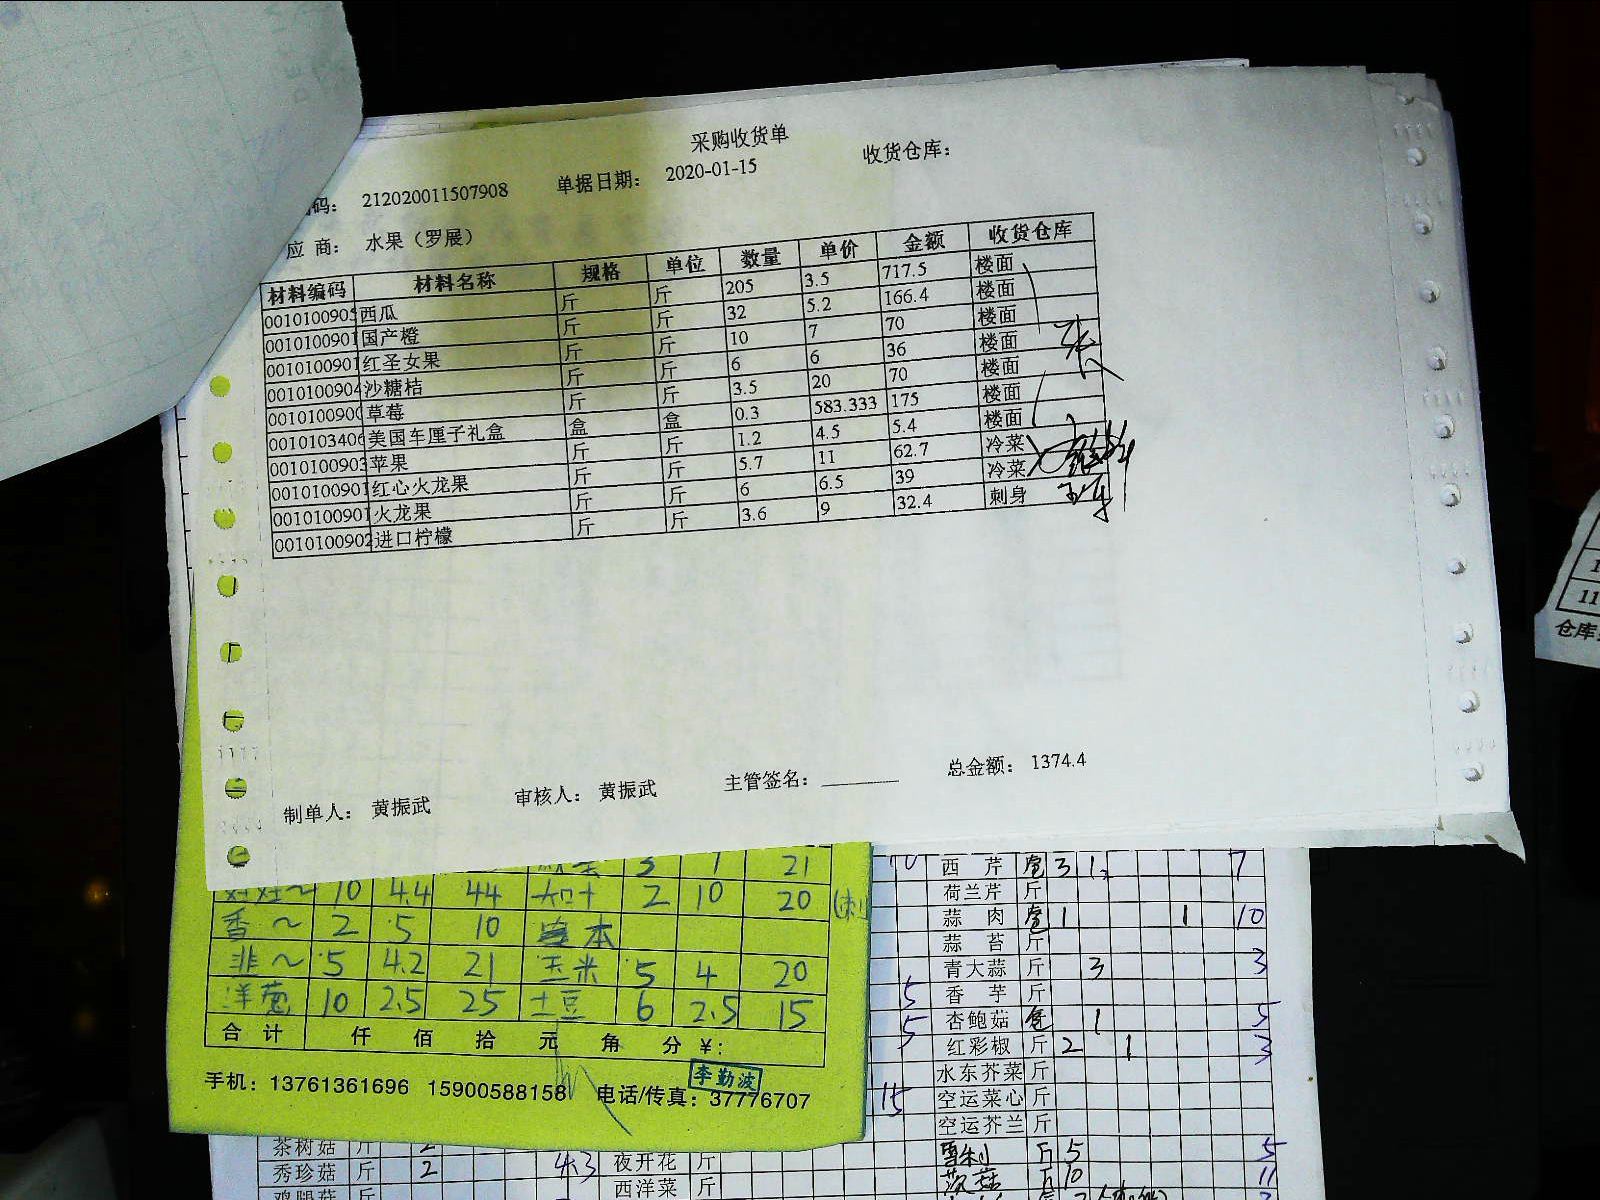 采购收货单
码： 212020011507908 单据日期： 2020-01-15 收货仓库：
应 商： 水果（罗展）
材料编码 材料名称 规格 单位 数量 单价 金额 收货仓库
0010100905 西瓜 斤 斤 205 3.5 717.5 楼面
0010100901 国产橙 斤 斤 32 5.2 166.4 楼面
0010100901 红圣女果 斤 斤 10 7 70 楼面
0010100904 沙糖桔 斤 斤 6 6 36 楼面
0010100900 草莓 斤 斤 3.5 20 70 楼面
0010103406 美国车厘子礼盒 盒 盒 0.3 583.333 175 楼面
0010100903 苹果 斤 斤 1.2 4.5 5.4 楼面
0010100901 红心火龙果 斤 斤 5.7 11 62.7 冷菜
0010100901 火龙果 斤 斤 6 6.5 39 冷菜
0010100902 进口柠檬 斤 斤 3.6 9 32.4 刺身
制单人： 黄振武 审核人： 黄振武 主管签名： 总金额： 1374.4
21
10 4.4 44 2 10 20
香～ 2 5 10 本
韭～ 5 4.2 21 玉米 5 4 20
洋葱 10 2.5 25 土豆 6 2.5 15
合 计 仟 佰 拾 元 角 分 ￥：
李勤波
手机：13761361696 15900588158 电话/传真：37776707
西 芹 3 1 7
荷兰芹 斤
蒜 肉 1 1 10
蒜 苔 斤
青大蒜 斤 3 3
5 香 芋 斤
5 杏鲍菇 1 5
红彩椒 斤 2 1 3
水东芥菜 斤
15 空运菜心 斤
空运芥兰 斤
茶树菇 斤 2 斤 5 5
秀珍菇 斤 2 4.3 夜开花 斤 斤 10 11
鸡腿菇 斤 西洋菜 斤
11
仓库：